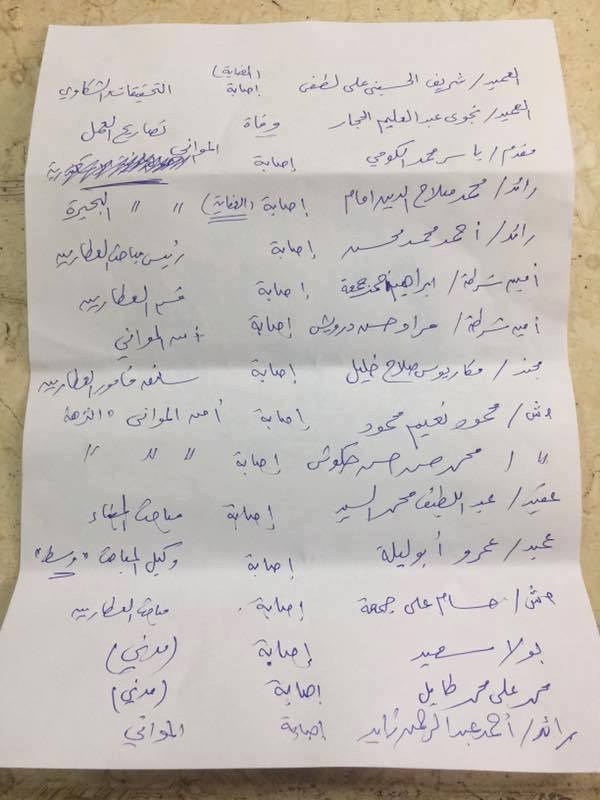 العميد/ شريف الحسيني علي لطفي (العناية) إصابة التحقيقات والشكاوي
العميد/ نجوى عبد العليم الحجار وفاة تصاريح العمل
مقدم/ ياسر محمد الكومي إصابة الموانى
رائد/ محمد صلاح الدين امام إصابة (العناية) " " البحيرة
رائد/ أحمد محمد محسن إصابة رئيس مباحث العطارين
أمين شرطة/ ابراهيم جمعة إصابة قسم العطارين
أمين شرطة/ مراد حسن درويش إصابة أمن الموانى
مجند/ مكاريوس صلاح خليل إصابة سائق مأمور العطارين
م ش/ محمود نعيم محمود إصابة أمن الموانى "النزهة
" / محمد حسن حسن إصابة " " "
عقيد/ عبد اللطيف محمد السيد إصابة مباحث الميناء
عميد/ عمرو أبو ليلة إصابة وكيل المباحث "وسط"
م ش/ حسام علي جمعة إصابة. مباحث العطارين
بولا سعيد إصابة (مدني)
محمد علي محمد طايل إصابة (مدني)
رائد/ أحمد عبد الرحمن زايد إصابة الموانى